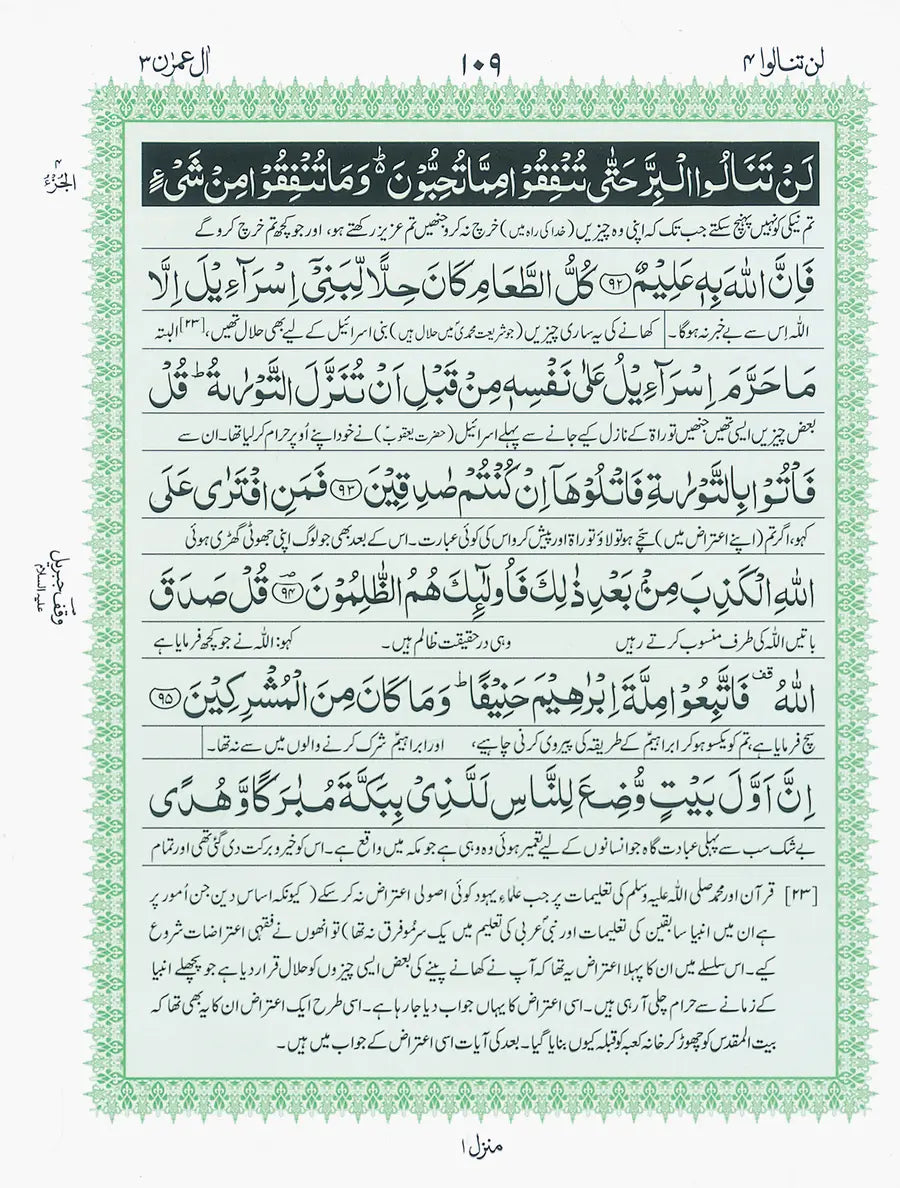 لن تنالوا ۴
۱۰۹
اٰل عمرٰن ۳
۴
الجزء
لَنْ تَنَالُوا الْبِرَّ حَتّٰى تُنْفِقُوْا مِمَّا تُحِبُّوْنَ ؕ وَمَا تُنْفِقُوْا مِنْ شَیْءٍ
تم نیکی کو نہیں پہنچ سکتے جب تک کہ اپنی وہ چیزیں (خدا کی راہ میں) خرچ نہ کرو جنھیں تم عزیز رکھتے ہو، اور جو کچھ تم خرچ کرو گے
فَاِنَّ اللّٰهَ بِهٖ عَلِيْمٌ ﴿۹۲﴾ كُلُّ الطَّعَامِ كَانَ حِلًّا لِّبَنِیْۤ اِسْرَآءِيْلَ اِلَّا
اللہ اس سے بے خبر نہ ہوگا۔ کھانے کی یہ ساری چیزیں (جو شریعت محمدیؐ میں حلال ہیں) بنی اسرائیل کے لیے بھی حلال تھیں،[۲۳] البتہ
مَا حَرَّمَ اِسْرَآءِيْلُ عَلٰى نَفْسِهٖ مِنْ قَبْلِ اَنْ تُنَزَّلَ التَّوْرٰىةُ ؕ قُلْ
بعض چیزیں ایسی تھیں جنھیں توراۃ کے نازل کیے جانے سے پہلے اسرائیل (حضرت یعقوبؑ) نے خود اپنے اُوپر حرام کر لیا تھا۔ ان سے
فَاْتُوْا بِالتَّوْرٰىةِ فَاتْلُوْهَاۤ اِنْ كُنْتُمْ صٰدِقِيْنَ ﴿۹۳﴾ فَمَنِ افْتَرٰى عَلَى
کہو، اگر تم (اپنے اعتراض میں) سچے ہو تو لاؤ توراۃ اور پیش کرو اس کی کوئی عبارت۔ اس کے بعد بھی جو لوگ اپنی جھوٹی گھڑی ہوئی
اللّٰهِ الْكَذِبَ مِنْۢ بَعْدِ ذٰلِكَ فَاُولٰٓئِكَ هُمُ الظّٰلِمُوْنَ ﴿۹۴﴾ؔ قُلْ صَدَقَ
وقف جبریل علیہ السلام
باتیں اللہ کی طرف منسوب کرتے رہیں وہی در حقیقت ظالم ہیں۔ کہو: اللہ نے جو کچھ فرمایا ہے
اللّٰهُ قف فَاتَّبِعُوْا مِلَّةَ اِبْرٰهِيْمَ حَنِيْفًا ؕ وَمَا كَانَ مِنَ الْمُشْرِكِيْنَ ﴿۹۵﴾
سچ فرمایا ہے، تم کو یکسو ہو کر ابراہیمؑ کے طریقہ کی پیروی کرنی چاہیے، اور ابراہیمؑ شرک کرنے والوں میں سے نہ تھا۔
اِنَّ اَوَّلَ بَيْتٍ وُّضِعَ لِلنَّاسِ لَلَّذِیْ بِبَكَّةَ مُبٰرَكًا وَّهُدًى
بے شک سب سے پہلی عبادت گاہ جو انسانوں کے لیے تعمیر ہوئی وہ وہی ہے جو مکہ میں واقع ہے۔ اس کو خیر و برکت دی گئی تھی اور تمام
[۲۳] قرآن اور محمد صلی اللہ علیہ وسلم کی تعلیمات پر جب علماء یہود کوئی اصولی اعتراض نہ کر سکے (کیونکہ اساس دین جن اُمور پر
ہے ان میں انبیا سابقین کی تعلیمات اور نبی عربی کی تعلیم میں یک سرِ مُو فرق نہ تھا) تو انھوں نے فقہی اعتراضات شروع
کیے۔ اس سلسلے میں ان کا پہلا اعتراض یہ تھا کہ آپ نے کھانے پینے کی بعض ایسی چیزوں کو حلال قرار دیا ہے جو پچھلے انبیا
کے زمانے سے حرام چلی آ رہی ہیں۔ اسی اعتراض کا یہاں جواب دیا جا رہا ہے۔ اسی طرح ایک اعتراض ان کا یہ بھی تھا کہ
بیت المقدس کو چھوڑ کر خانہ کعبہ کو قبلہ کیوں بنایا گیا۔ بعد کی آیات اسی اعتراض کے جواب میں ہیں۔
منزل ۱